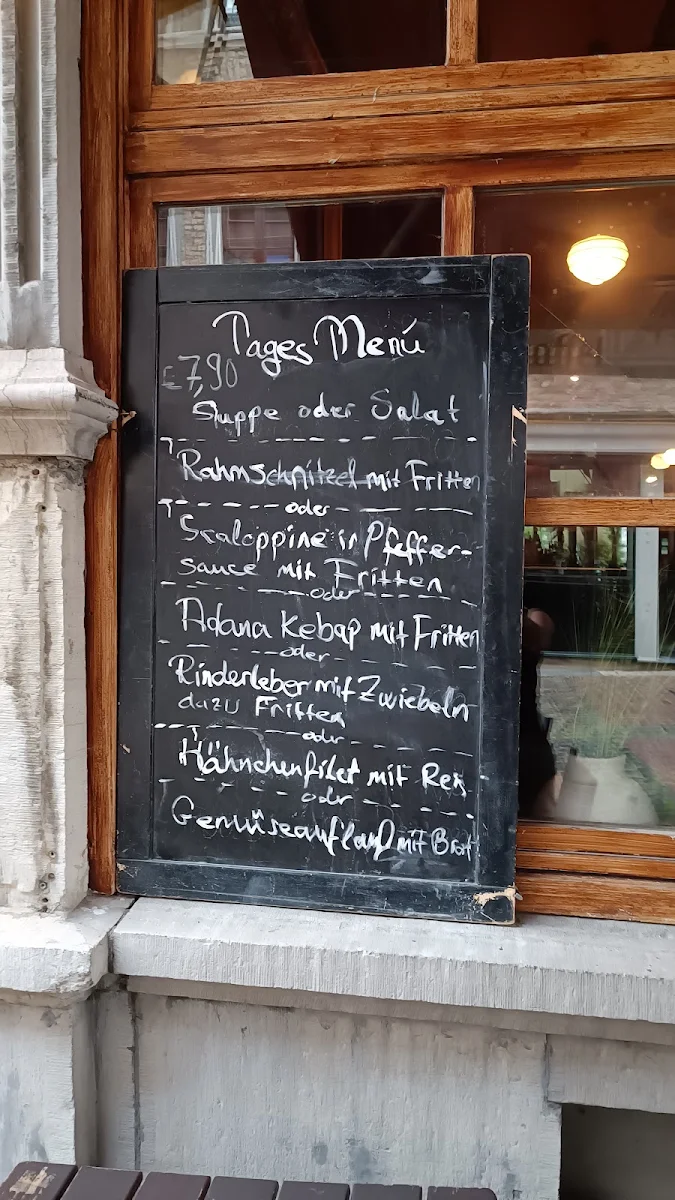 Tages Menú
€7,90
Suppe oder Salat
Rahmschnitzel mit Fritten
oder
Scaloppine in Pfeffer-
sauce mit Fritten
oder
Adana Kebap mit Fritten
oder
Rinderleber mit Zwiebeln
dazu Fritten
oder
Hähnchenfilet mit Reis
oder
Gemüseauflauf mit Brot